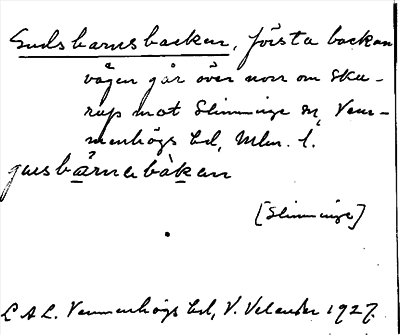 Gudsbarnsbacken, första backen
vägen går över norr om Sku-
rup mot Slimminge sn, Vem-
menhögs hd, Mlm. l.
gusbárnabàkan
[Slimminge]
L A L. Vemmenhögs hd, V. Velander 1927.